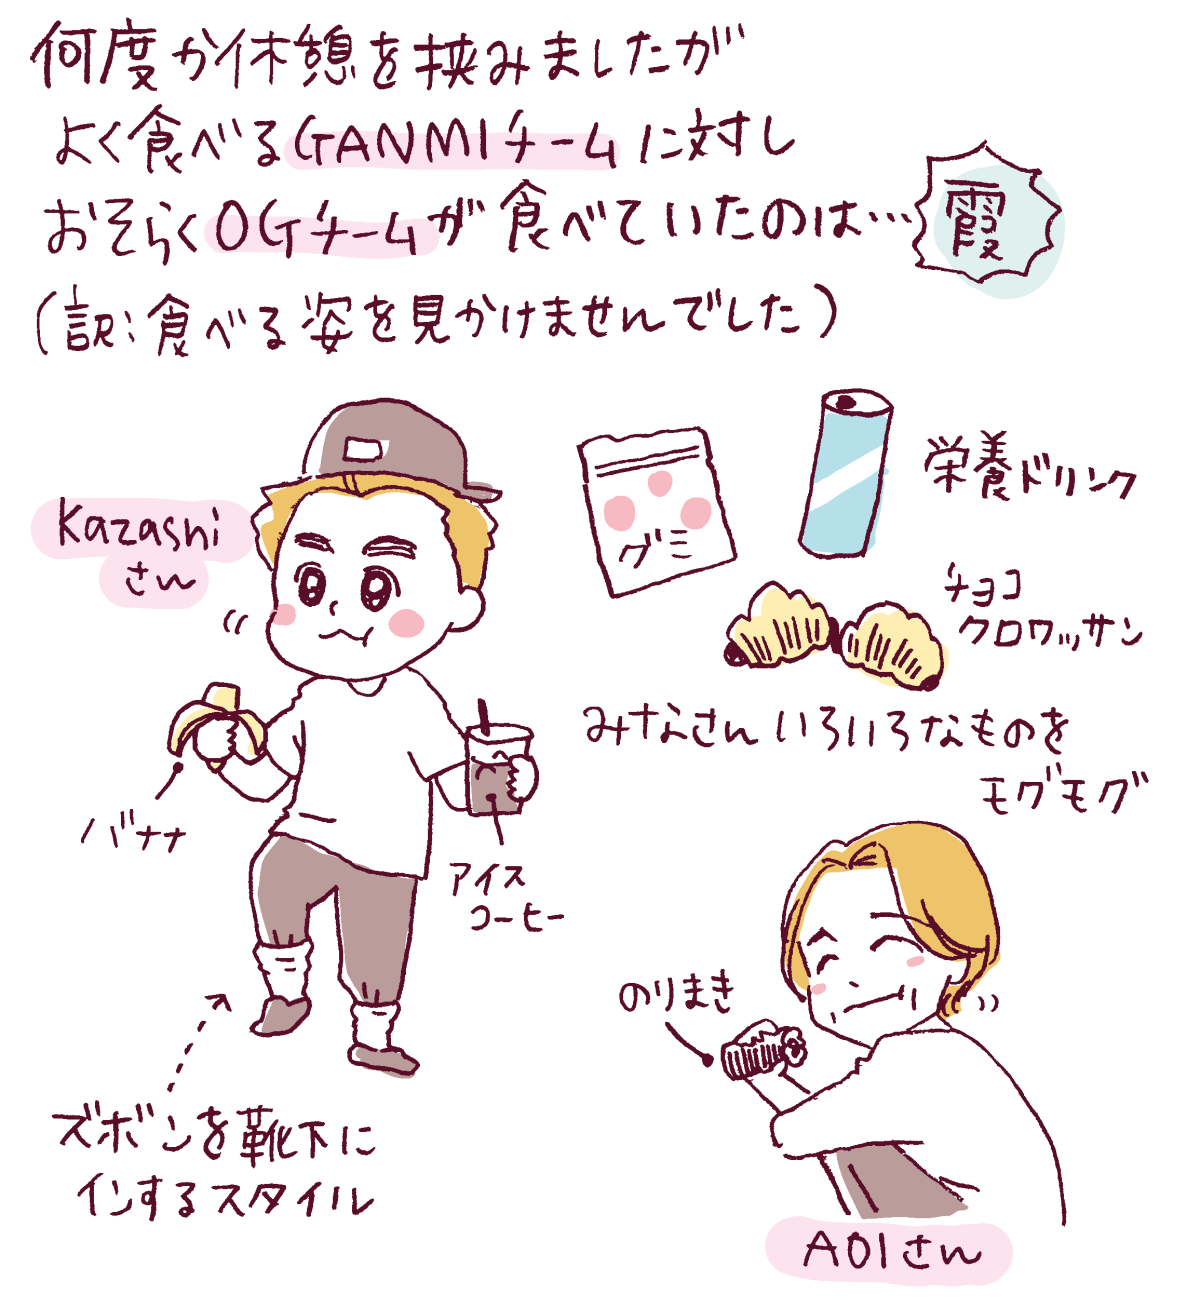 何度か休憩を挟みましたが
よく食べるGANMIチームに対し
おそらくOGチームが食べていたのは…
霞
(訳:食べる姿を見かけませんでした)
Kazashi
さん
バナナ
アイス
コーヒー
ズボンを靴下に
インするスタイル
グミ
栄養ドリンク
チョコ
クロワッサン
みなさんいろいろなものを
モグモグ
のりまき
AOIさん